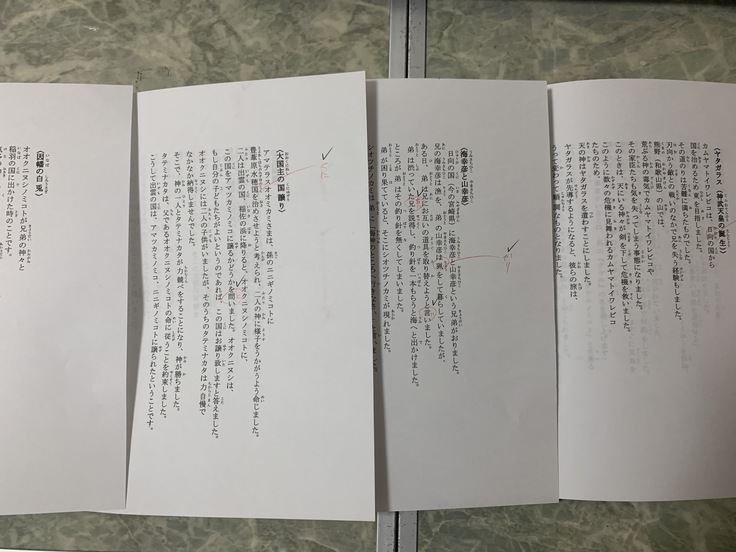 〈ヤタガラス（神武天皇の誕生）〉
カムヤマトイワレビコは、日向の国から
国を治めるため東を目指しました。
その道のりは苦難に満ちたものでした。
刃向かう敵との戦いのなかで兄を失う経験もしました。
熊野（和歌山県）の山では、
荒ぶる神の毒気でカムヤマトイワレビコや、
その家臣たちも気を失ってしまう事態になりました。
このときは、天にいる神々が剣を下して危機を救いました。
このように数々の危機に見舞われるカムヤマトイワレビコ
たちのため、
天の神はヤタガラスを遣わすことにしました。
ヤタガラスが先導するようになると、彼らの旅は、
うって変わって順調なものとなりました。
〈海幸彦と山幸彦〉
日向の国（今の宮崎県）に海幸彦と山幸彦という兄弟がおりました。
兄の海幸彦は漁を、弟の山幸彦は猟をして暮らしていましたが、
ある日、弟は兄にお互いの道具を取り替えようと言いました。
弟は渋っていた兄を説得し、釣り針を一本もらうと海へと出かけました。
ところが弟はその釣り針を無くしてしまいました。
弟が困り果てていると、そこにシオツチノカミが現れました。
〈大国主の国譲り〉
アマテラスオオミカミさまは、孫のニニギノミコトに
豊葦原の水穂国を治めさせようと考えられ、二人の神に様子をうかがうよう命じました。
二人は出雲の国、稲佐の浜に降りると、オオクニヌシノミコトに、
この国をアマツカミノミコに譲るかどうかを問いました。オオクニヌシは、
もし自分の子どもたちがよいというのであれば、この国はお譲り致しますと答えました。
オオクニヌシには二人の子供がいましたが、そのうちのタテミナカタは力自慢で
なかなか納得しませんでした。
そこで、神の一人とタテミナカタが力競べをすることになり、神が勝ちました。
タテミナカタは、父であるオオクニヌシノミコトの命に従うことを約束しました。
こうして出雲の国は、アマツカミノミコ、ニニギノミコトに譲られたということです。
〈因幡の白兎〉
オオクニヌシノミコトが兄弟の神々と
稲羽の国に出かけた時のことです。